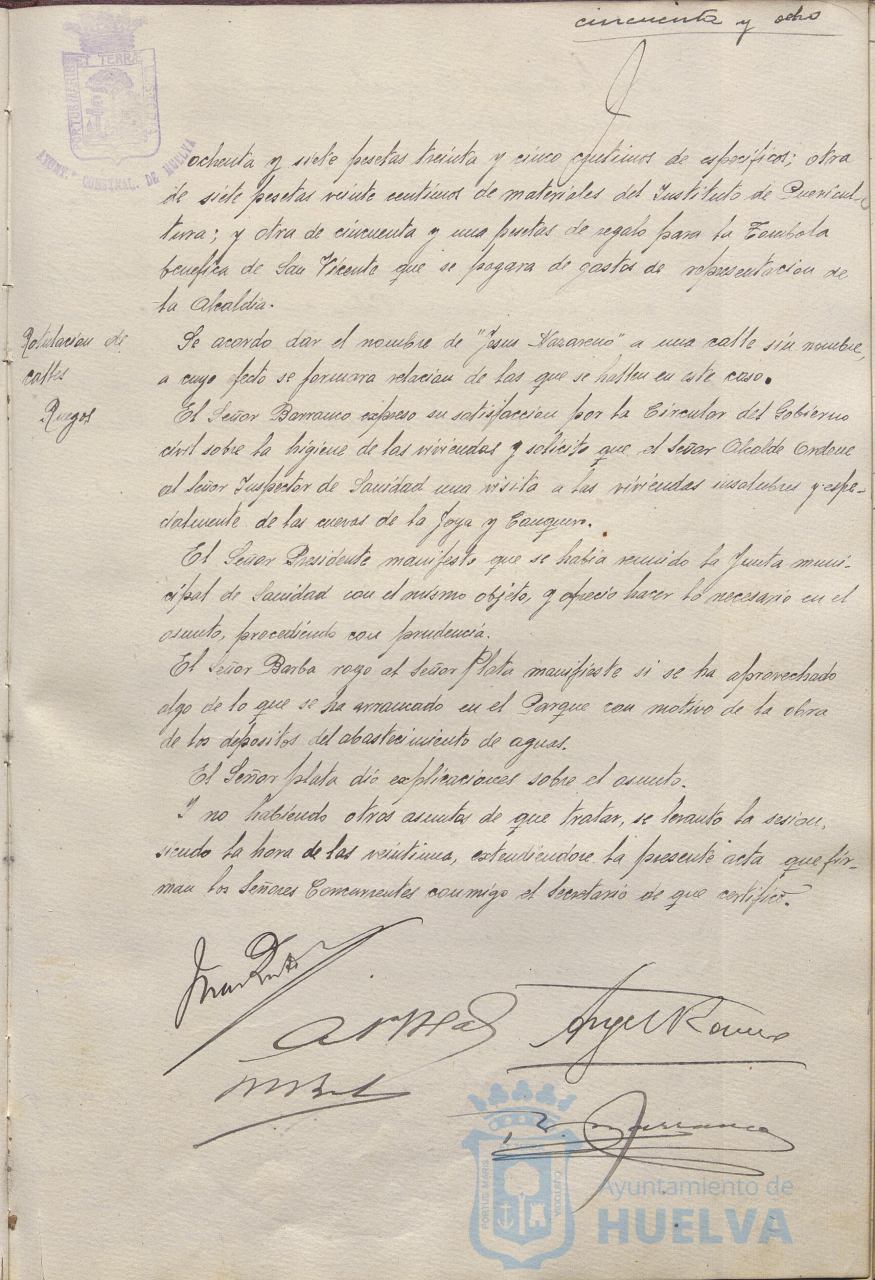 cincuenta y ocho
PORTUS MARIS ET TERRÆ CUSTODIA
AYUNT.º CONSTNAL. DE HUELVA
ochenta y siete pesetas treinta y cinco centimos de especificos; otra
de siete pesetas veinte centimos de materiales del Instituto de Puericul-
tura; y otra de cincuenta y una pesetas de regalo para la Tombola
benefica de San Vicente que se pagara de gastos de representacion de
la Alcaldia.
Rotulacion de
calles
Se acordo dar el nombre de "Jesus Nazareno" a una calle sin nombre,
a cuyo efecto se formara relacion de las que se hallen en este caso.
Ruegos
El Señor Barranco expreso su satisfaccion por la Circular del Gobierno
civil sobre la higiene de las viviendas y solicito que el Señor Alcalde Ordene
al Señor Inspector de Sanidad una visita a las viviendas insalubres y espe-
cialmente de las cuevas de la Joya y Conquero.
El Señor Presidente manifesto que se habia reunido la Junta muni-
cipal de Sanidad con el mismo objeto, y ofrecio hacer lo necesario en el
asunto, procediendo con prudencia.
El Señor Barba rogo al Señor Plata manifieste si se ha aprovechado
algo de lo que se ha arrancado en el Parque con motivo de la obra
de los depositos del abastecimiento de aguas.
El Señor plata dio explicaciones sobre el asunto.
Y no habiendo otros asuntos de que tratar, se levanto la sesion,
siendo la hora de las veintiuna, extendiendose la presente acta que fir-
man los Señores Concurrentes conmigo el Secretario de que certifico.
Angel Romero
Barranco
PORTUS MARIS CUSTODIA
Ayuntamiento de
HUELVA